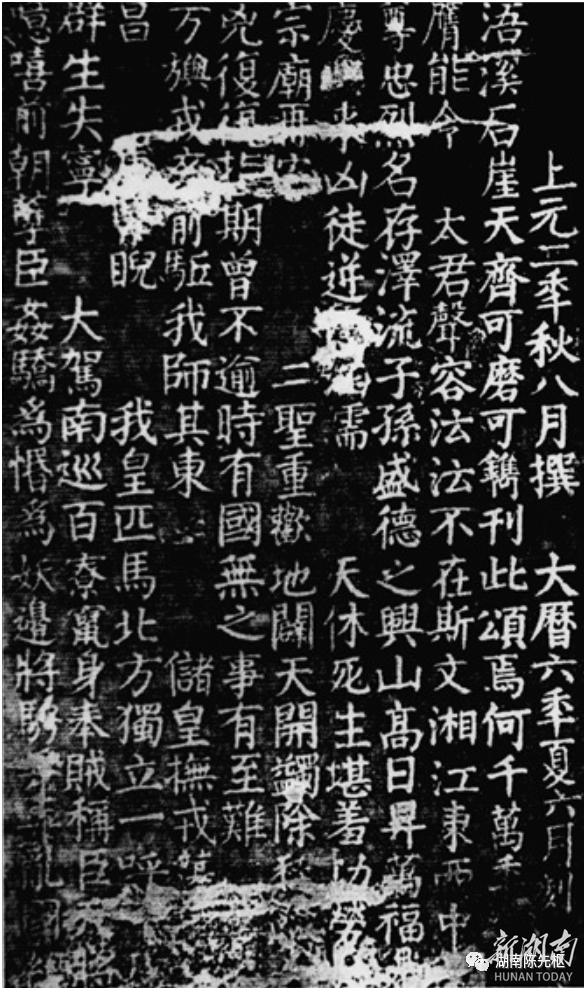 噫嘻前朝孽臣姦驕為惛為妖邊將騁亂國
群生失寧 大駕南巡百寮竄身奉賊稱臣
昌 睨 我皇匹馬北方獨立一呼
万旟戎卒前駈我師其東 儲皇撫戎
兇復復指期曾不逾時有國無之事有至難
宗廟再安 二聖重歡地闢天開蠲除
慶來凶徒逆濡 天休死生堪羞功勞
尊忠烈名存澤流子孫盛德之興山高日昇萬福
膺能令 太君聲容沄沄不在斯文湘江東西中
浯溪石崖天齊可磨可鐫刊此頌焉何千萬年
上元二年秋八月撰 大曆六年夏六月刻
新湖南
湖南陈先枢
HUNAN TODAY